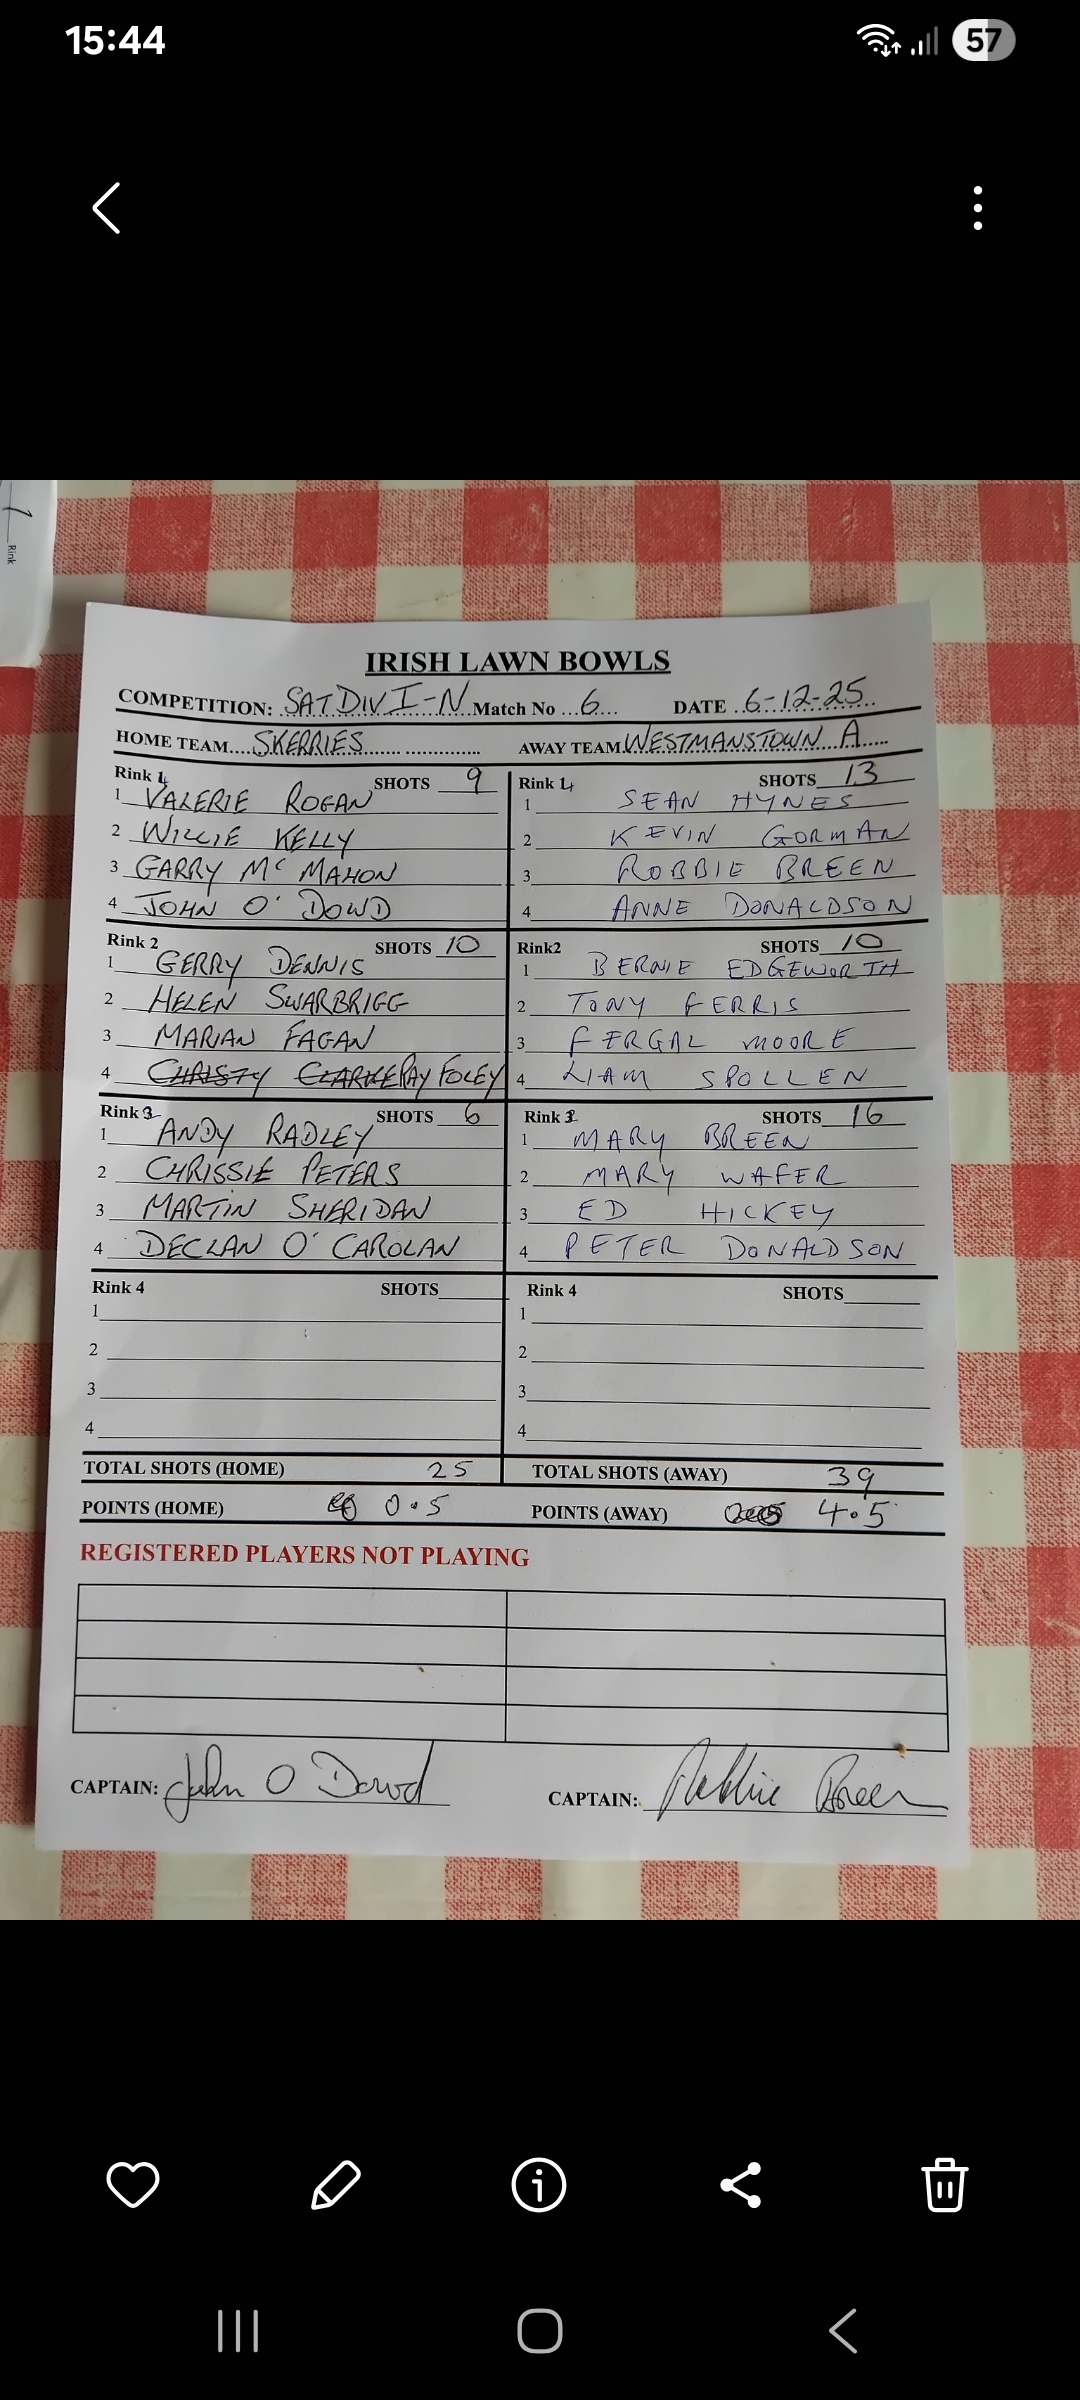 15:44
57
Rink
IRISH LAWN BOWLS
COMPETITION: SAT DIV I-N Match No ...6... DATE 6-12-25
HOME TEAM SKERRIES AWAY TEAM WESTMANSTOWN A
Rink 4 SHOTS 9 Rink 4 SHOTS 13
1 VALERIE ROGAN 1 SEAN HYNES
2 WILLIE KELLY 2 KEVIN GORMAN
3 GARRY Mc MAHON 3 ROBBIE BREEN
4 JOHN O' DOWD 4 ANNE DONALDSON
Rink 2 SHOTS 10 Rink2 SHOTS 10
1 GERRY DENNIS 1 BERNIE EDGEWORTH
2 HELEN SWARBRIGG 2 TONY FERRIS
3 MARIAN FAGAN 3 FERGAL MOORE
4 CHRISTY CLARKE RAY FOLEY 4 LIAM SPOLLEN
Rink 3 SHOTS 6 Rink 3 SHOTS 16
1 ANDY RADLEY 1 MARY BREEN
2 CHRISSIE PETERS 2 MARY WAFER
3 MARTIN SHERIDAN 3 ED HICKEY
4 DECLAN O' CAROLAN 4 PETER DONALDSON
Rink 4 SHOTS Rink 4 SHOTS
1 1
2 2
3 3
4 4
TOTAL SHOTS (HOME) 25 TOTAL SHOTS (AWAY) 39
POINTS (HOME) 0.5 POINTS (AWAY) 4.5
REGISTERED PLAYERS NOT PLAYING
CAPTAIN: John O Dowd CAPTAIN: Robbie Breen